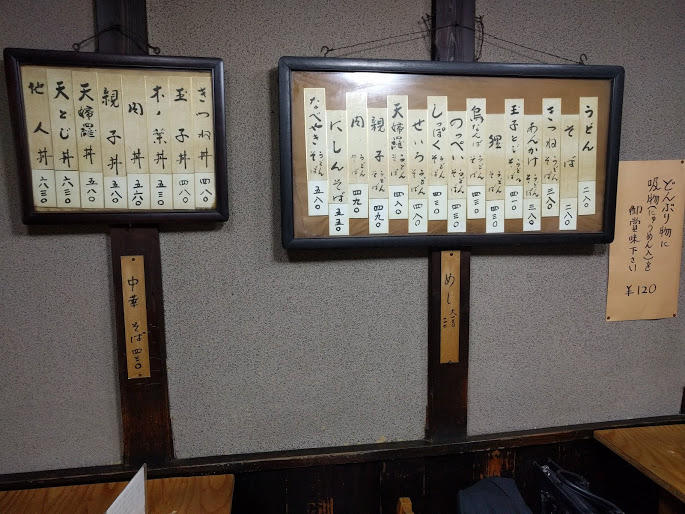 きつね丼 四八〇
玉子丼 四八〇
木ノ葉丼 五三〇
肉丼 五六〇
親子丼 五八〇
天婦羅丼 五八〇
天とじ丼 六三〇
他人丼 六三〇
中華そば 四三〇
うどん 二八〇
そば 二八〇
きつね うどん そば 三八〇
あんかけ うどん そば 三八〇
玉子とじ うどん そば 四一〇
うどん そば 四三〇
鳥なんば うどん そば 四三〇
のっぺい うどん そば 四三〇
しっぽく うどん そば 四三〇
せいろ うどん そば 四三〇
天婦羅 うどん そば 四八〇
親子 うどん そば 四九〇
肉 うどん そば 四九〇
にしんそば 五五〇
なべやき うどん そば 五八〇
めし
どんぶり物に
吸物(にゅうめん入)を
御賞味下さい
¥120